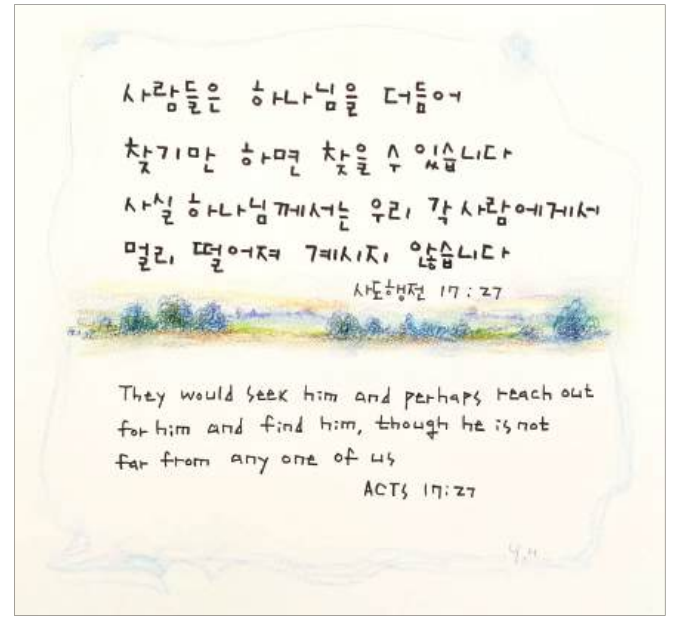 사람들은 하나님을 더듬어
찾기만 하면 찾을 수 있습니다
사실 하나님께서는 우리 각 사람에게서
멀리 떨어져 계시지 않습니다
사도행전 17:27
They would seek him and perhaps reach out
for him and find him, though he is not
far from any one of us
ACTS 17:27